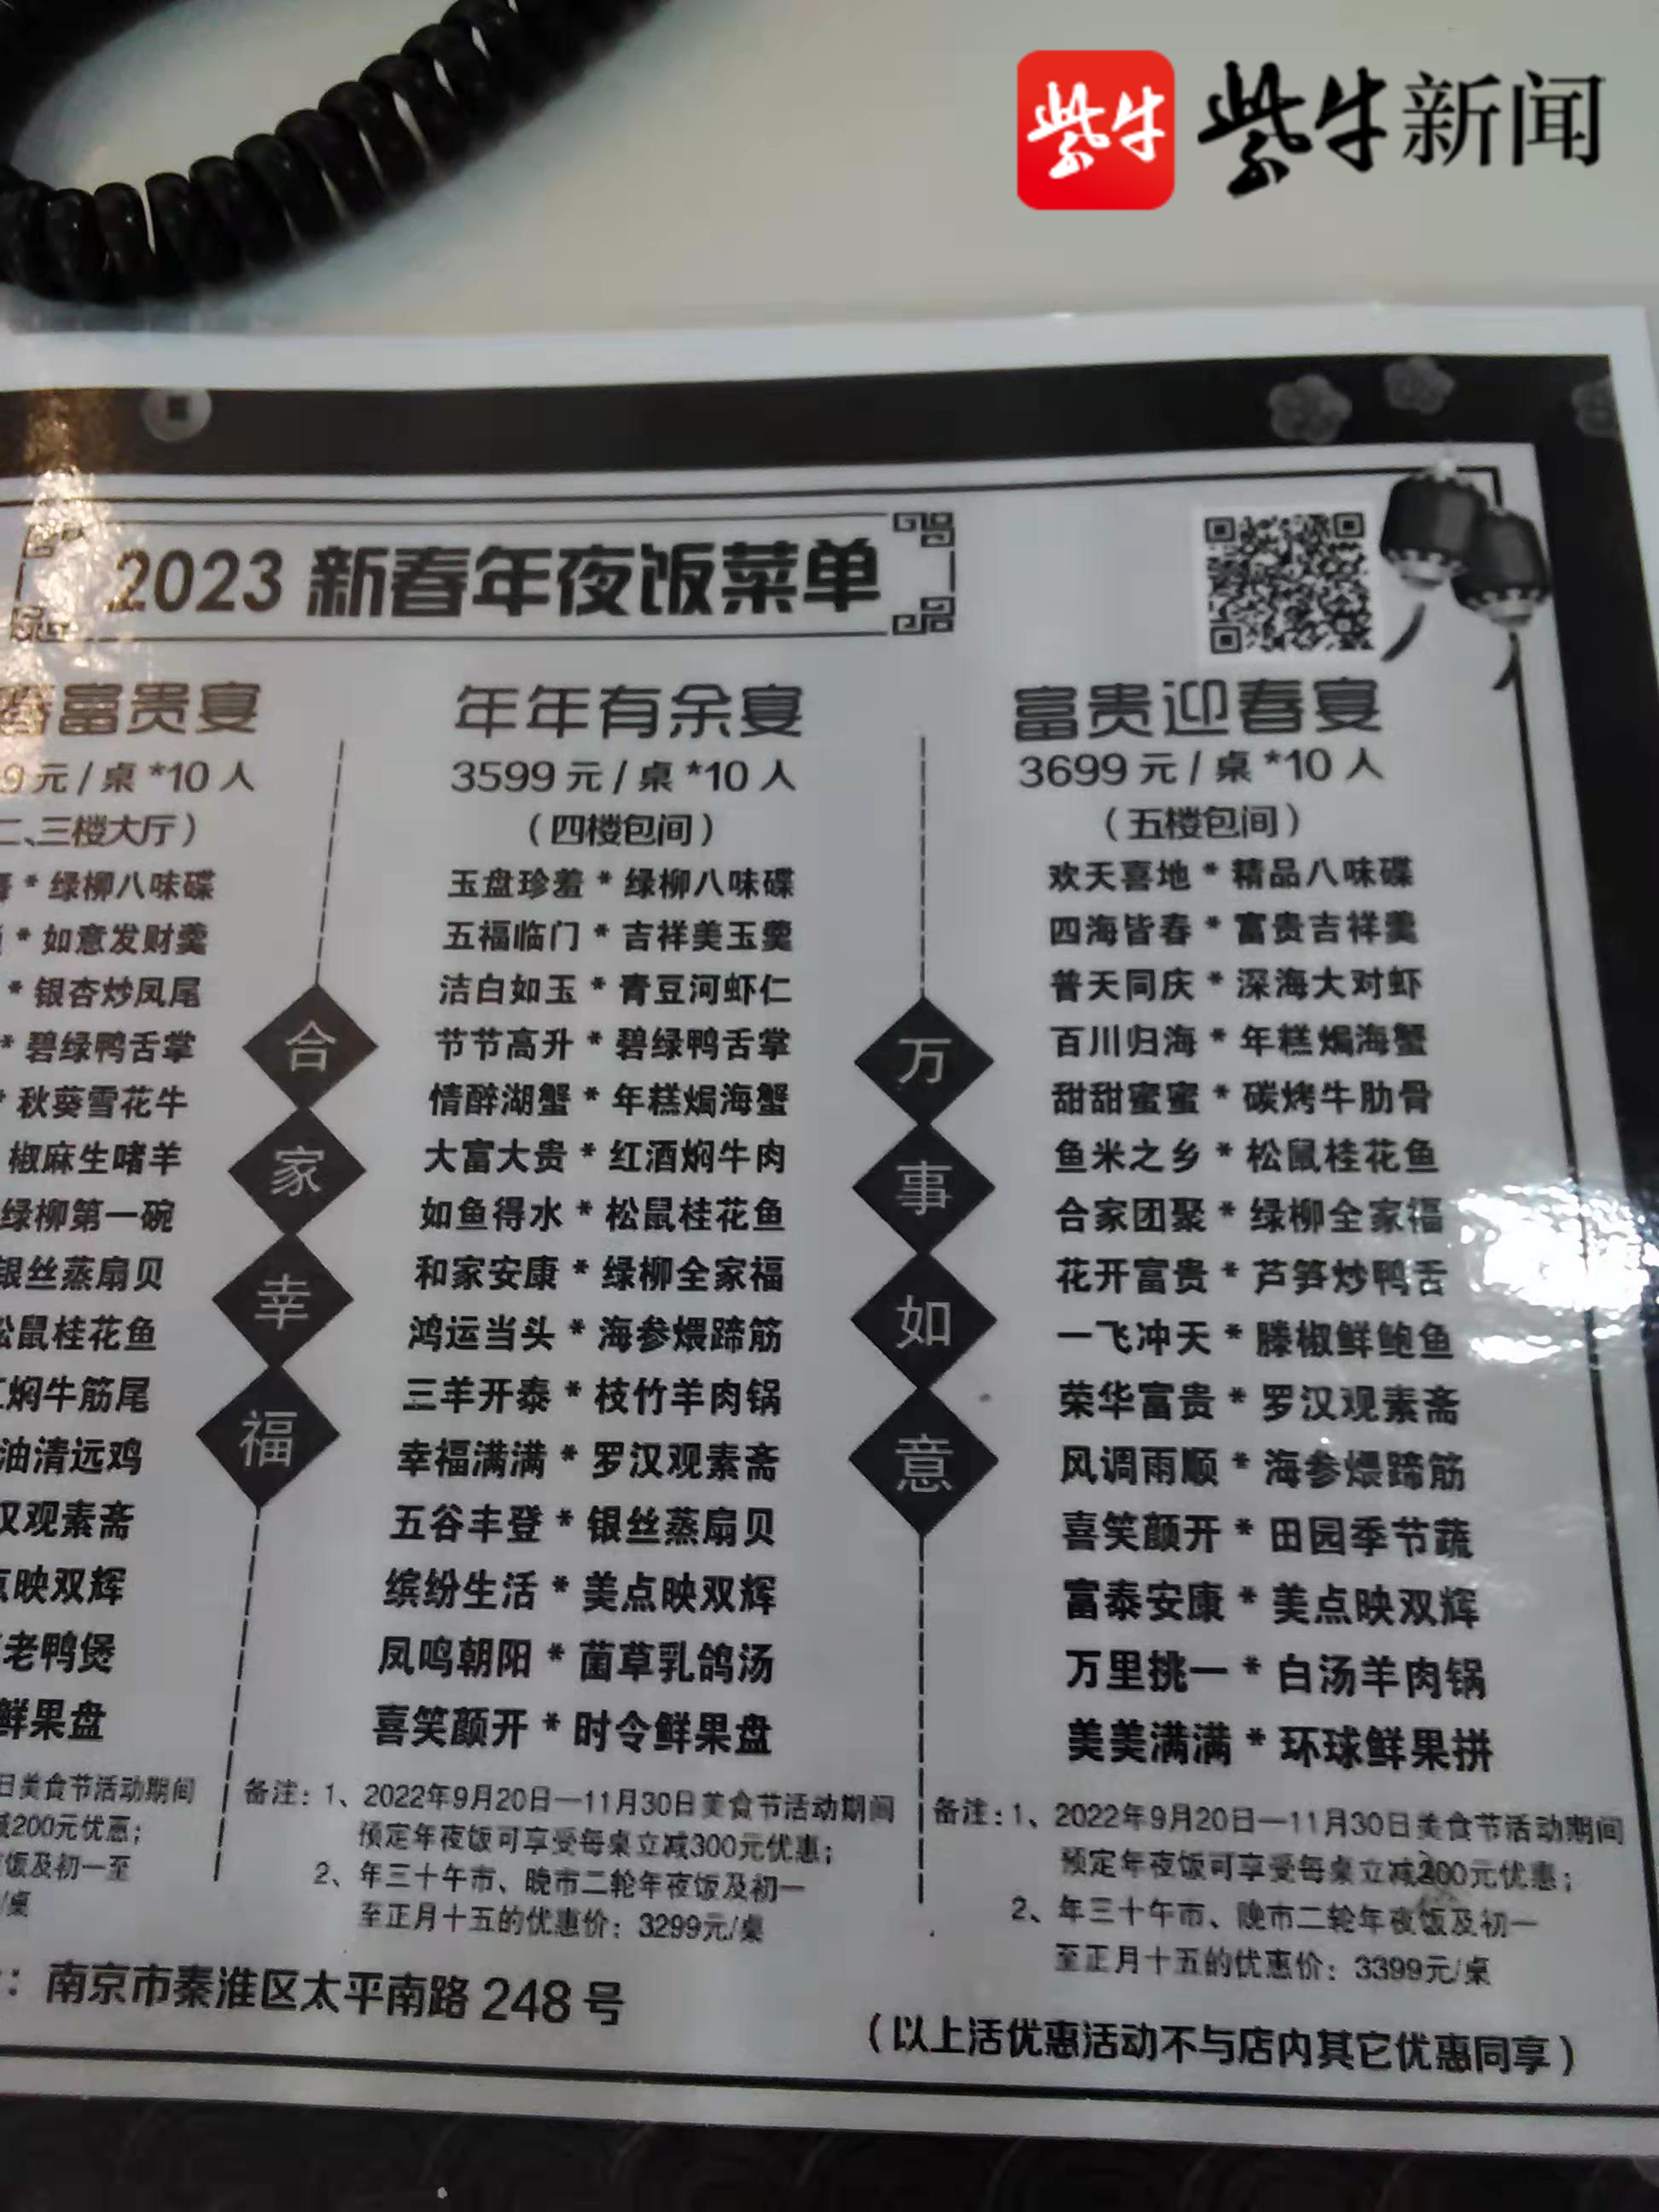 紫牛 紫牛新闻
2023 新春年夜饭菜单
富贵宴
9元/桌*10人
二、三楼大厅）
* 绿柳八味碟
* 如意发财羹
* 银杏炒凤尾
* 碧绿鸭舌掌
* 秋葵雪花牛
椒麻生啫羊
绿柳第一碗
银丝蒸扇贝
松鼠桂花鱼
焖牛筋尾
油清远鸡
汉观素斋
点映双辉
老鸭煲
鲜果盘
日美食节活动期间
减200元优惠；
饭及初一至
/桌
合家幸福
年年有余宴
3599元/桌*10人
（四楼包间）
玉盘珍羞 * 绿柳八味碟
五福临门 * 吉祥美玉羹
洁白如玉 * 青豆河虾仁
节节高升 * 碧绿鸭舌掌
情醉湖蟹 * 年糕焗海蟹
大富大贵 * 红酒焖牛肉
如鱼得水 * 松鼠桂花鱼
和家安康 * 绿柳全家福
鸿运当头 * 海参煨蹄筋
三羊开泰 * 枝竹羊肉锅
幸福满满 * 罗汉观素斋
五谷丰登 * 银丝蒸扇贝
缤纷生活 * 美点映双辉
凤鸣朝阳 * 菌草乳鸽汤
喜笑颜开 * 时令鲜果盘
备注：1、2022年9月20日—11月30日美食节活动期间
预定年夜饭可享受每桌立减300元优惠；
2、年三十午市、晚市二轮年夜饭及初一
至正月十五的优惠价：3299元/桌
万事如意
富贵迎春宴
3699元/桌*10人
（五楼包间）
欢天喜地 * 精品八味碟
四海皆春 * 富贵吉祥羹
普天同庆 * 深海大对虾
百川归海 * 年糕焗海蟹
甜甜蜜蜜 * 碳烤牛肋骨
鱼米之乡 * 松鼠桂花鱼
合家团聚 * 绿柳全家福
花开富贵 * 芦笋炒鸭舌
一飞冲天 * 滕椒鲜鲍鱼
荣华富贵 * 罗汉观素斋
风调雨顺 * 海参煨蹄筋
喜笑颜开 * 田园季节蔬
富泰安康 * 美点映双辉
万里挑一 * 白汤羊肉锅
美美满满 * 环球鲜果拼
备注：1、2022年9月20日—11月30日美食节活动期间
预定年夜饭可享受每桌立减300元优惠；
2、年三十午市、晚市二轮年夜饭及初一
至正月十五的优惠价：3399元/桌
：南京市秦淮区太平南路248号
（以上活优惠活动不与店内其它优惠同享）